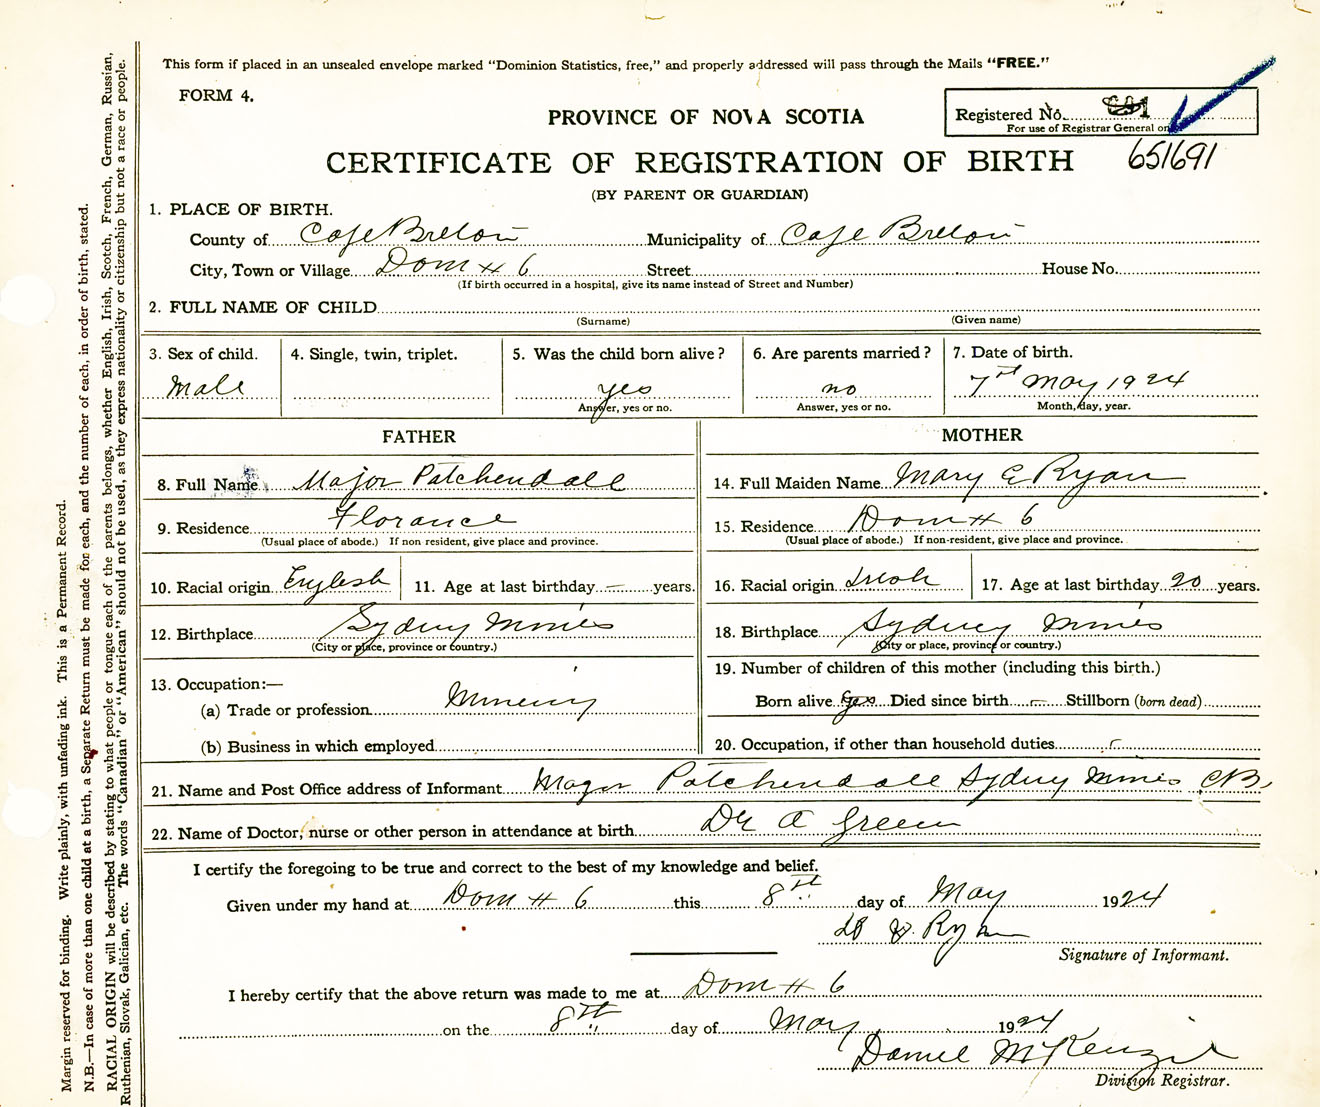 This form if placed in an unsealed envelope marked "Dominion Statistics, free," and properly addressed will pass through the Mails "FREE."
FORM 4.
PROVINCE OF NOVA SCOTIA
Registered No.
For use of Registrar General on
651691
CERTIFICATE OF REGISTRATION OF BIRTH
(BY PARENT OR GUARDIAN)
1. PLACE OF BIRTH.
County of Cape Breton Municipality of Cape Breton
City, Town or Village Dom # 6 Street House No.
(If birth occurred in a hospital, give its name instead of Street and Number)
2. FULL NAME OF CHILD
(Surname) (Given name)
3. Sex of child. 4. Single, twin, triplet. 5. Was the child born alive? 6. Are parents married? 7. Date of birth.
Male yes no 7th May 1924
Answer, yes or no. Answer, yes or no. Month, day, year.
FATHER MOTHER
8. Full Name Major Patchendall 14. Full Maiden Name Mary E Ryan
9. Residence Florance 15. Residence Dom # 6
(Usual place of abode.) If non resident, give place and province. (Usual place of abode.) If non-resident, give place and province.
10. Racial origin English 11. Age at last birthday — years. 16. Racial origin Irish 17. Age at last birthday 20 years.
12. Birthplace Sydney Mines 18. Birthplace Sydney Mines
(City or place, province or country.) (City or place, province or country.)
13. Occupation:— 19. Number of children of this mother (including this birth.)
(a) Trade or profession Mineing Born alive yes Died since birth — Stillborn (born dead)
(b) Business in which employed 20. Occupation, if other than household duties
21. Name and Post Office address of Informant Major Patchendall Sydney Mines CB,
22. Name of Doctor, nurse or other person in attendance at birth Dr A Green
I certify the foregoing to be true and correct to the best of my knowledge and belief.
Given under my hand at Dom # 6 this 8th day of May 1924
Ryan
Signature of Informant.
I hereby certify that the above return was made to me at Dom # 6
on the 8th day of May 1924
Daniel McKenzie
Division Registrar.
Margin reserved for binding. Write plainly, with unfading ink. This is a Permanent Record.
N.B.—In case of more than one child at a birth, a Separate Return must be made for each, and the number of each, in order of birth, stated.
RACIAL ORIGIN will be described by stating to what people or tongue each of the parents belongs, whether English, Irish, Scotch, French, German, Russian,
Ruthenian, Slovak, Galician, etc. The words "Canadian" or "American" should not be used, as they express nationality or citizenship but not a race or people.